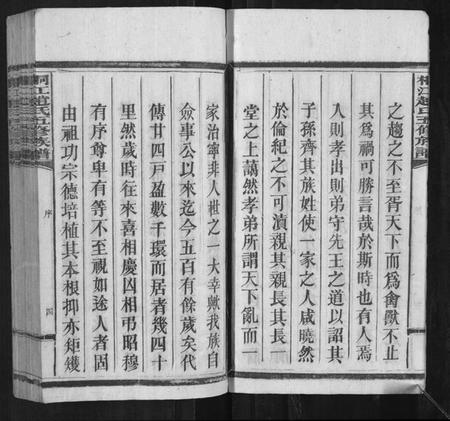 之趨之不至胥天下而爲禽獸不止
其爲禍可勝言哉於斯時也有人焉
入則孝出則弟守先王之道以詔其
子孫齊其族姓使一家之人咸曉然
於倫紀之不可瀆親其親長其長一
堂之上藹然孝弟所謂天下亂而一
家治寧非人世之一大幸歟我族自
僉事公以來迄今五百有餘歲矣代
傳廿四戶盈數千環而居者幾四十
里然歲時往來喜相慶凶相弔昭穆
有序尊卑有等不至視如途人者固
由祖功宗德培植其本根抑亦矩矱
桐江趙氏五修族譜
序
四